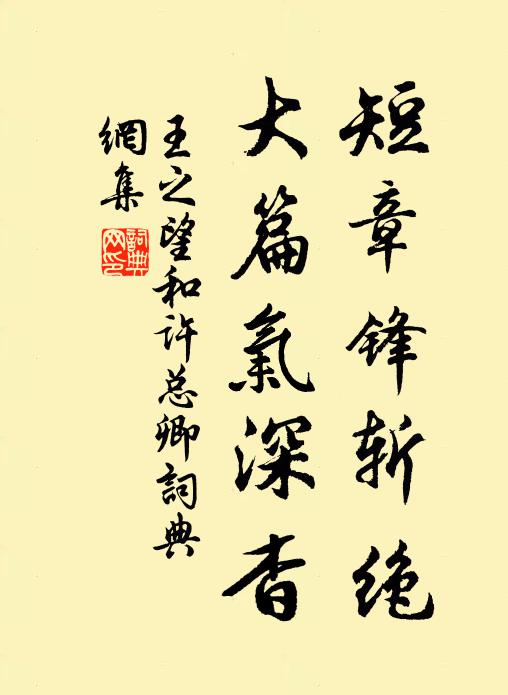 短章锋斩绝
大篇氣深杳
王之望和许总卿詞典
網集
詞典
网印